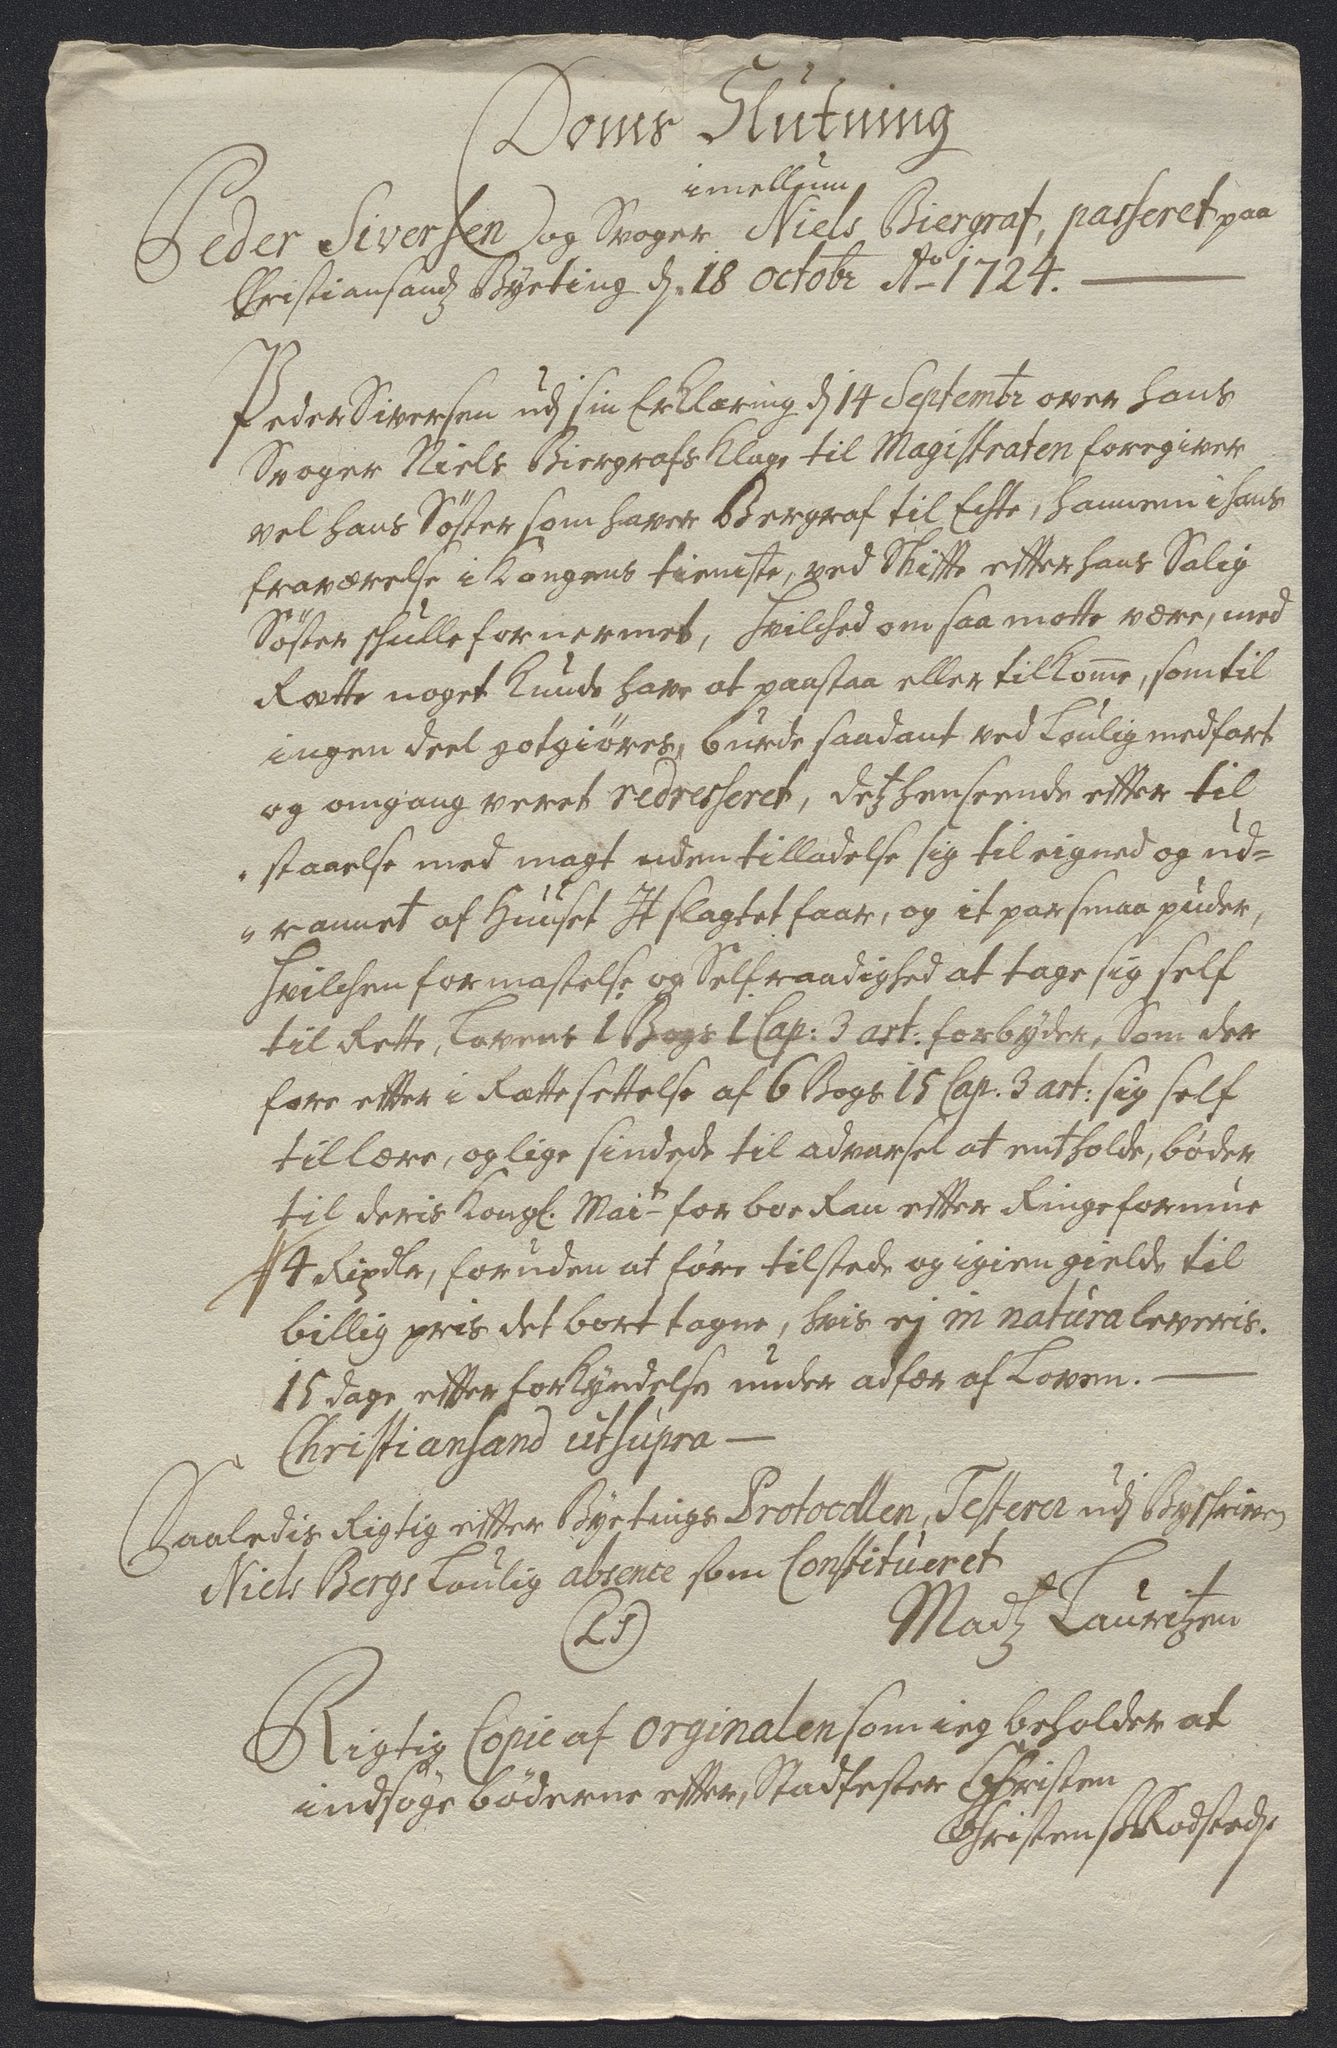 Doms Slutning
imellum
Peder Siversen og Svoger Niels Biergraf, passeret paa
Christiansandz Byeting d. 18 octobr Ao 1724.
Peder Siversen udj sin Erklæring d 14 Septembr over hans
Svoger Niels Biergrafs Klage til Magistraten foregiver
vel hans Söster som haver Bergraf til Echte, hannem i hans
fraværelse i Kongens tieniste, ved Skifte efter hans Salig
Söster skulle fornermet, hvilched om saa motte være, med
Rætte noget kunde have at paastaa eller tilkom̄e, som til
ingen deel gotgiöres, burde saadant ved Loulig medfart
og omgang veret redresseret, detz henseende efter til
staaelse med magt uden tilladelse sig til eigned og ud=
rannet af Huuset It slagtet faar, og it par smaa puder,
hvilchen formastelse og Selfraadighed at tage sig self
til Rette, Lovens 1 Bogs 1 Cap: 3 art: forbyder, Som der
fore efter i Rættesettelse af 6 Bogs 15 Cap. 3 art: sig self
til lære, og lige sindede til advarsel at entholde, bøder
til deris Kongl. Maits for boe Ran efter Ringe formue
4 Rixdlr, foruden at føre tilstede og igien gielde til
billig pris det bort tagne, hvis ej in natura leveris.
15 dage efter forkyndelse under adfær af Loven.
Christiansand ut supra
Saaledis Rigtig efter Byetings Protocollen, Testerer udj Byskriver
Niels Bergs Loulig absence som Constitueret
(LS) Madz Lauritzen
Rigtig Copie af orginalen som ieg beholder at
indsøge bøderne efter, Stadfester Christen
Christens Rodsted